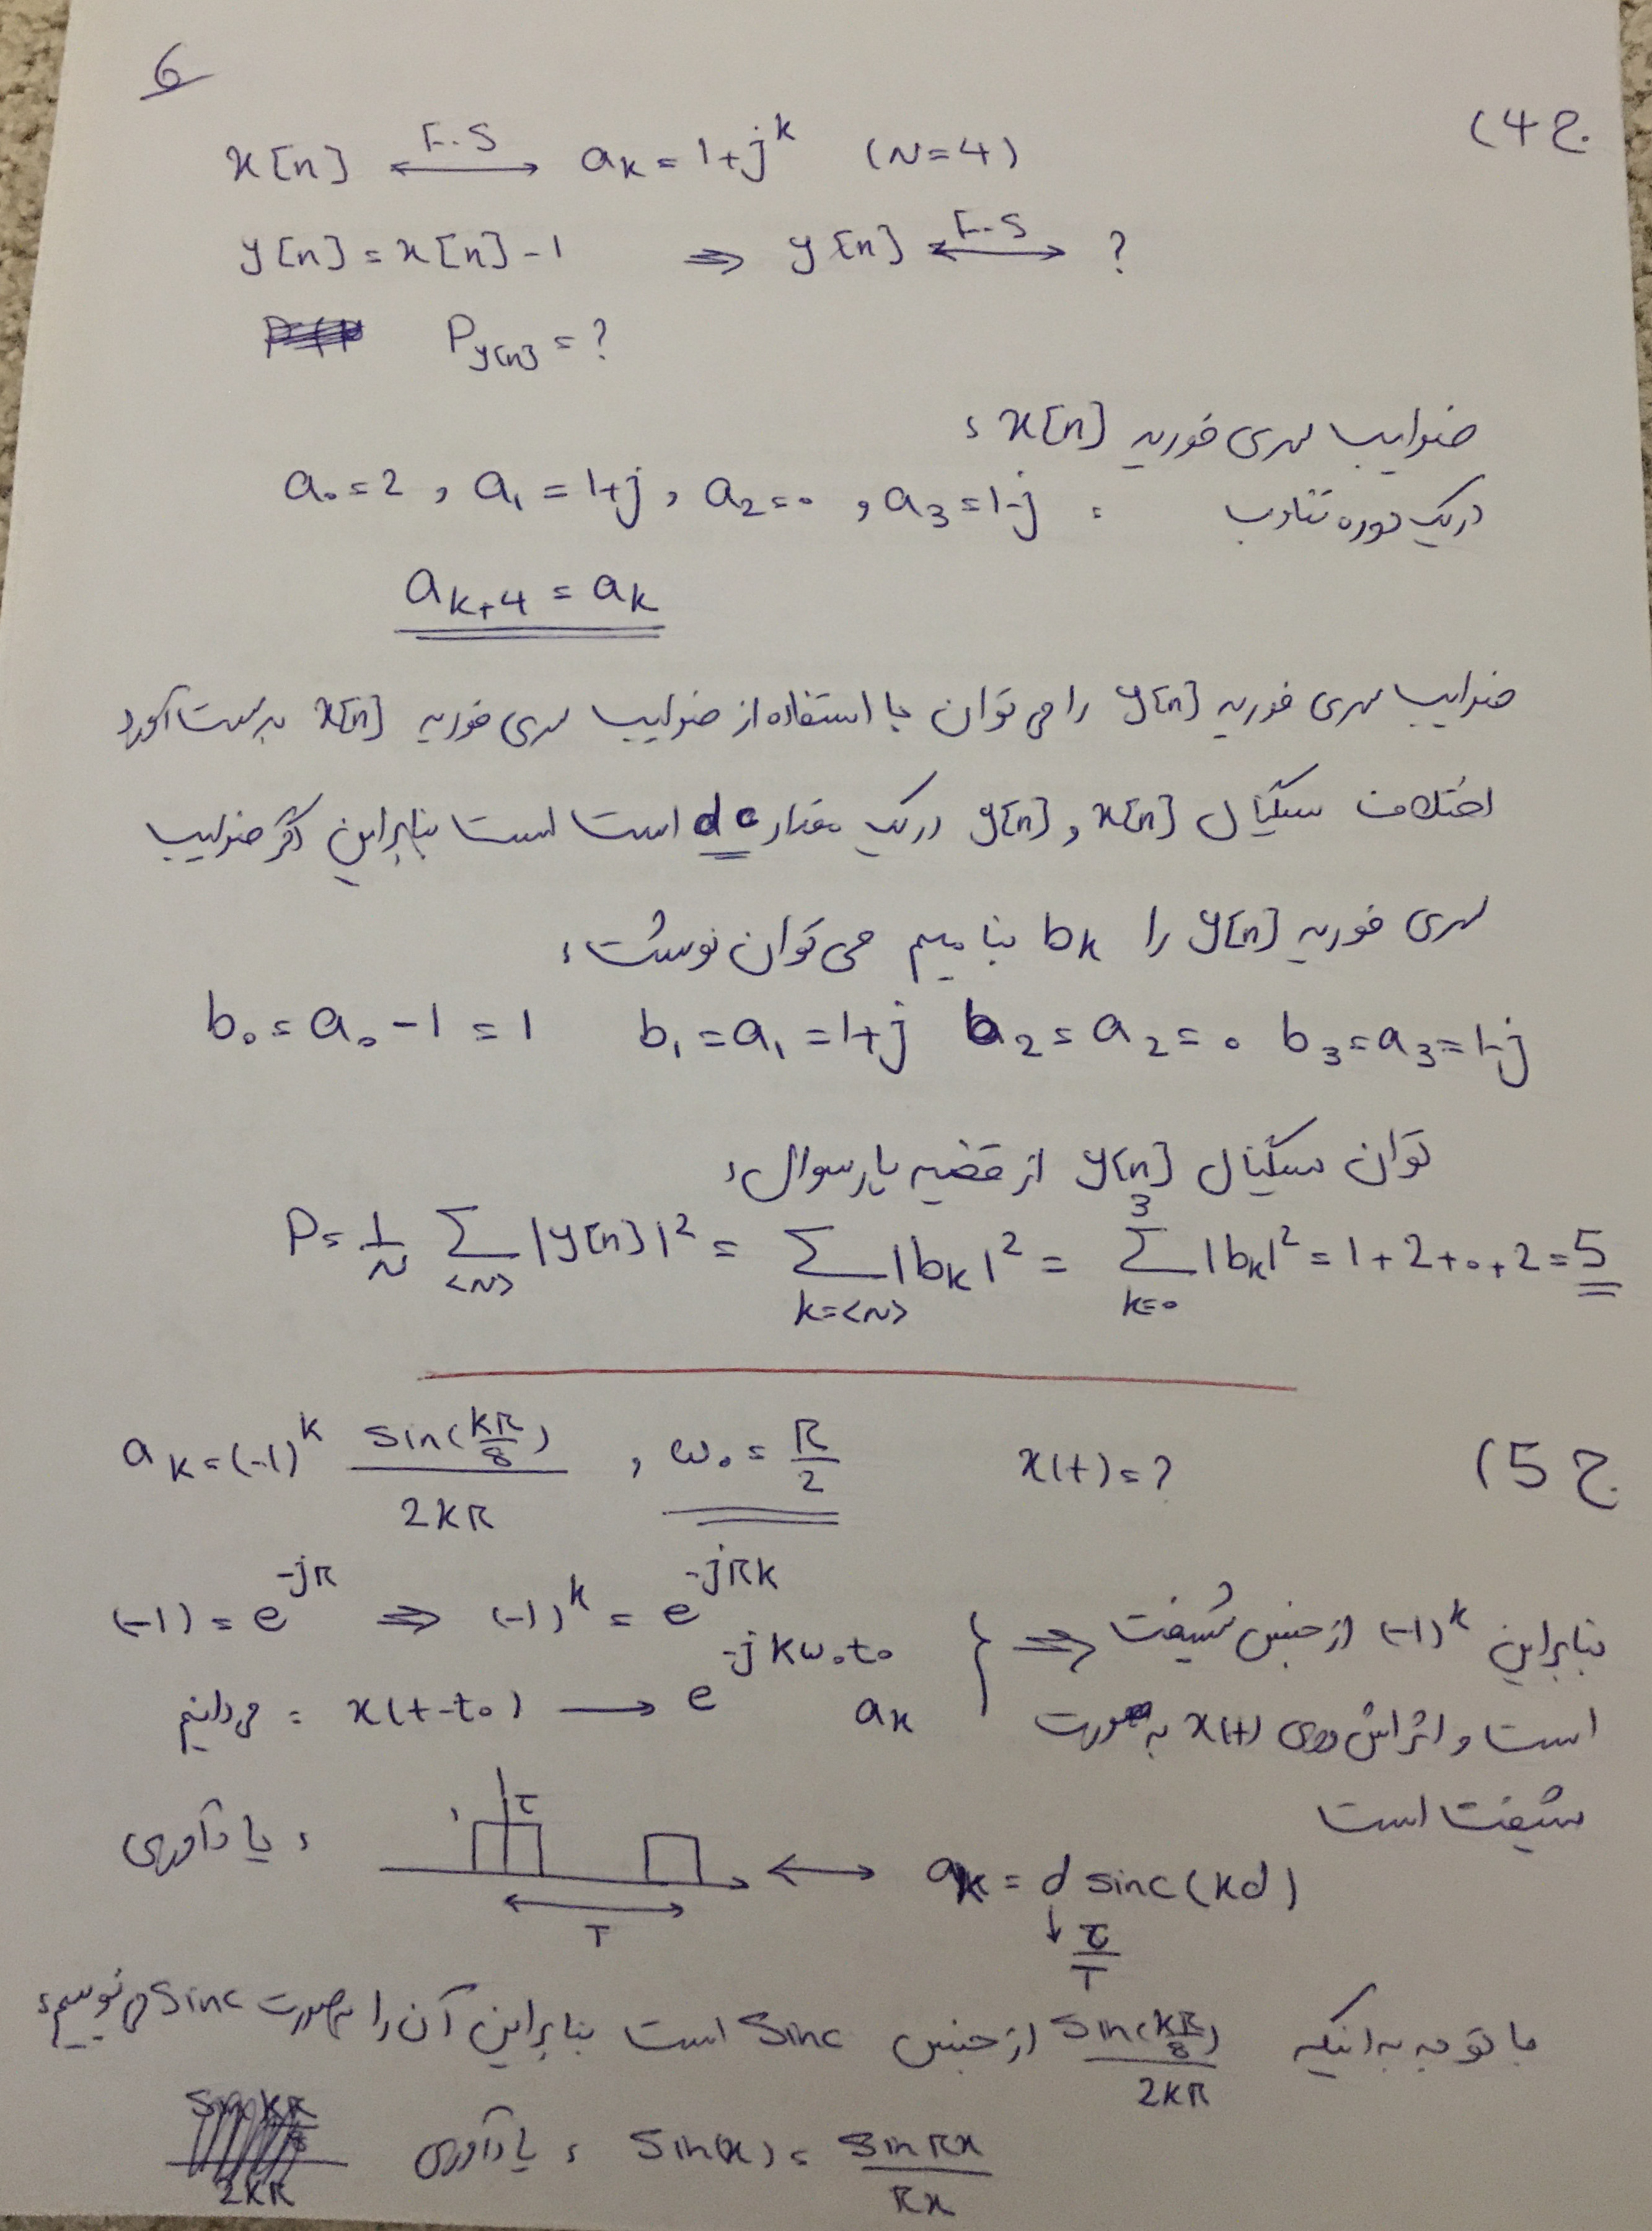 6
ج 4)
x[n] ←F.S→ aₖ = 1+j^k (N=4)
y[n] = x[n]-1 ⇒ y[n] ←F.S→ ?
P_y[n] = ?
ضرایب سری فوریه x[n] :
در یک دوره تناوب : a₀=2 , a₁=1+j , a₂=0 , a₃=1-j
aₖ₊₄ = aₖ
ضرایب سری فوریه y[n] را می توان با استفاده از ضرایب سری فوریه x[n] بدست آورد
اختلاف سیگنال x[n] و y[n] در یک مقدار dc است است بنابراین اگر ضرایب
سری فوریه y[n] را bₖ بنامیم می توان نوشت :
b₀ = a₀-1 = 1 b₁ = a₁ = 1+j b₂ = a₂ = 0 b₃ = a₃ = 1-j
توان سیگنال y[n] از قضیه پارسوال :
P = 1/N Σ_<N> |y[n]|² = Σ_k=<N> |bₖ|² = Σ_k=0^3 |bₖ|² = 1+2+0+2 = 5
ج 5)
aₖ = (-1)^k sin(kπ/8)/2kπ , ω₀ = π/2 x(t) = ?
(-1) = e^-jπ ⇒ (-1)^k = e^-jπk
می دانیم : x(t-t₀) → e^-jkω₀t₀ aₖ
} ⇒ بنابراین (-1)^k از جنس شیفت
است و اثراش روی x(t) به صورت
شیفت است
یادآوری :
1 τ T ↔ aₖ = d sinc(kd)
↓ τ/T
با توجه به اینکه sin(kπ/8)/2kπ از جنس sinc است بنابراین آن را بصورت sinc می نویسیم :
یادآوری : sin(x) = sin πx/πx